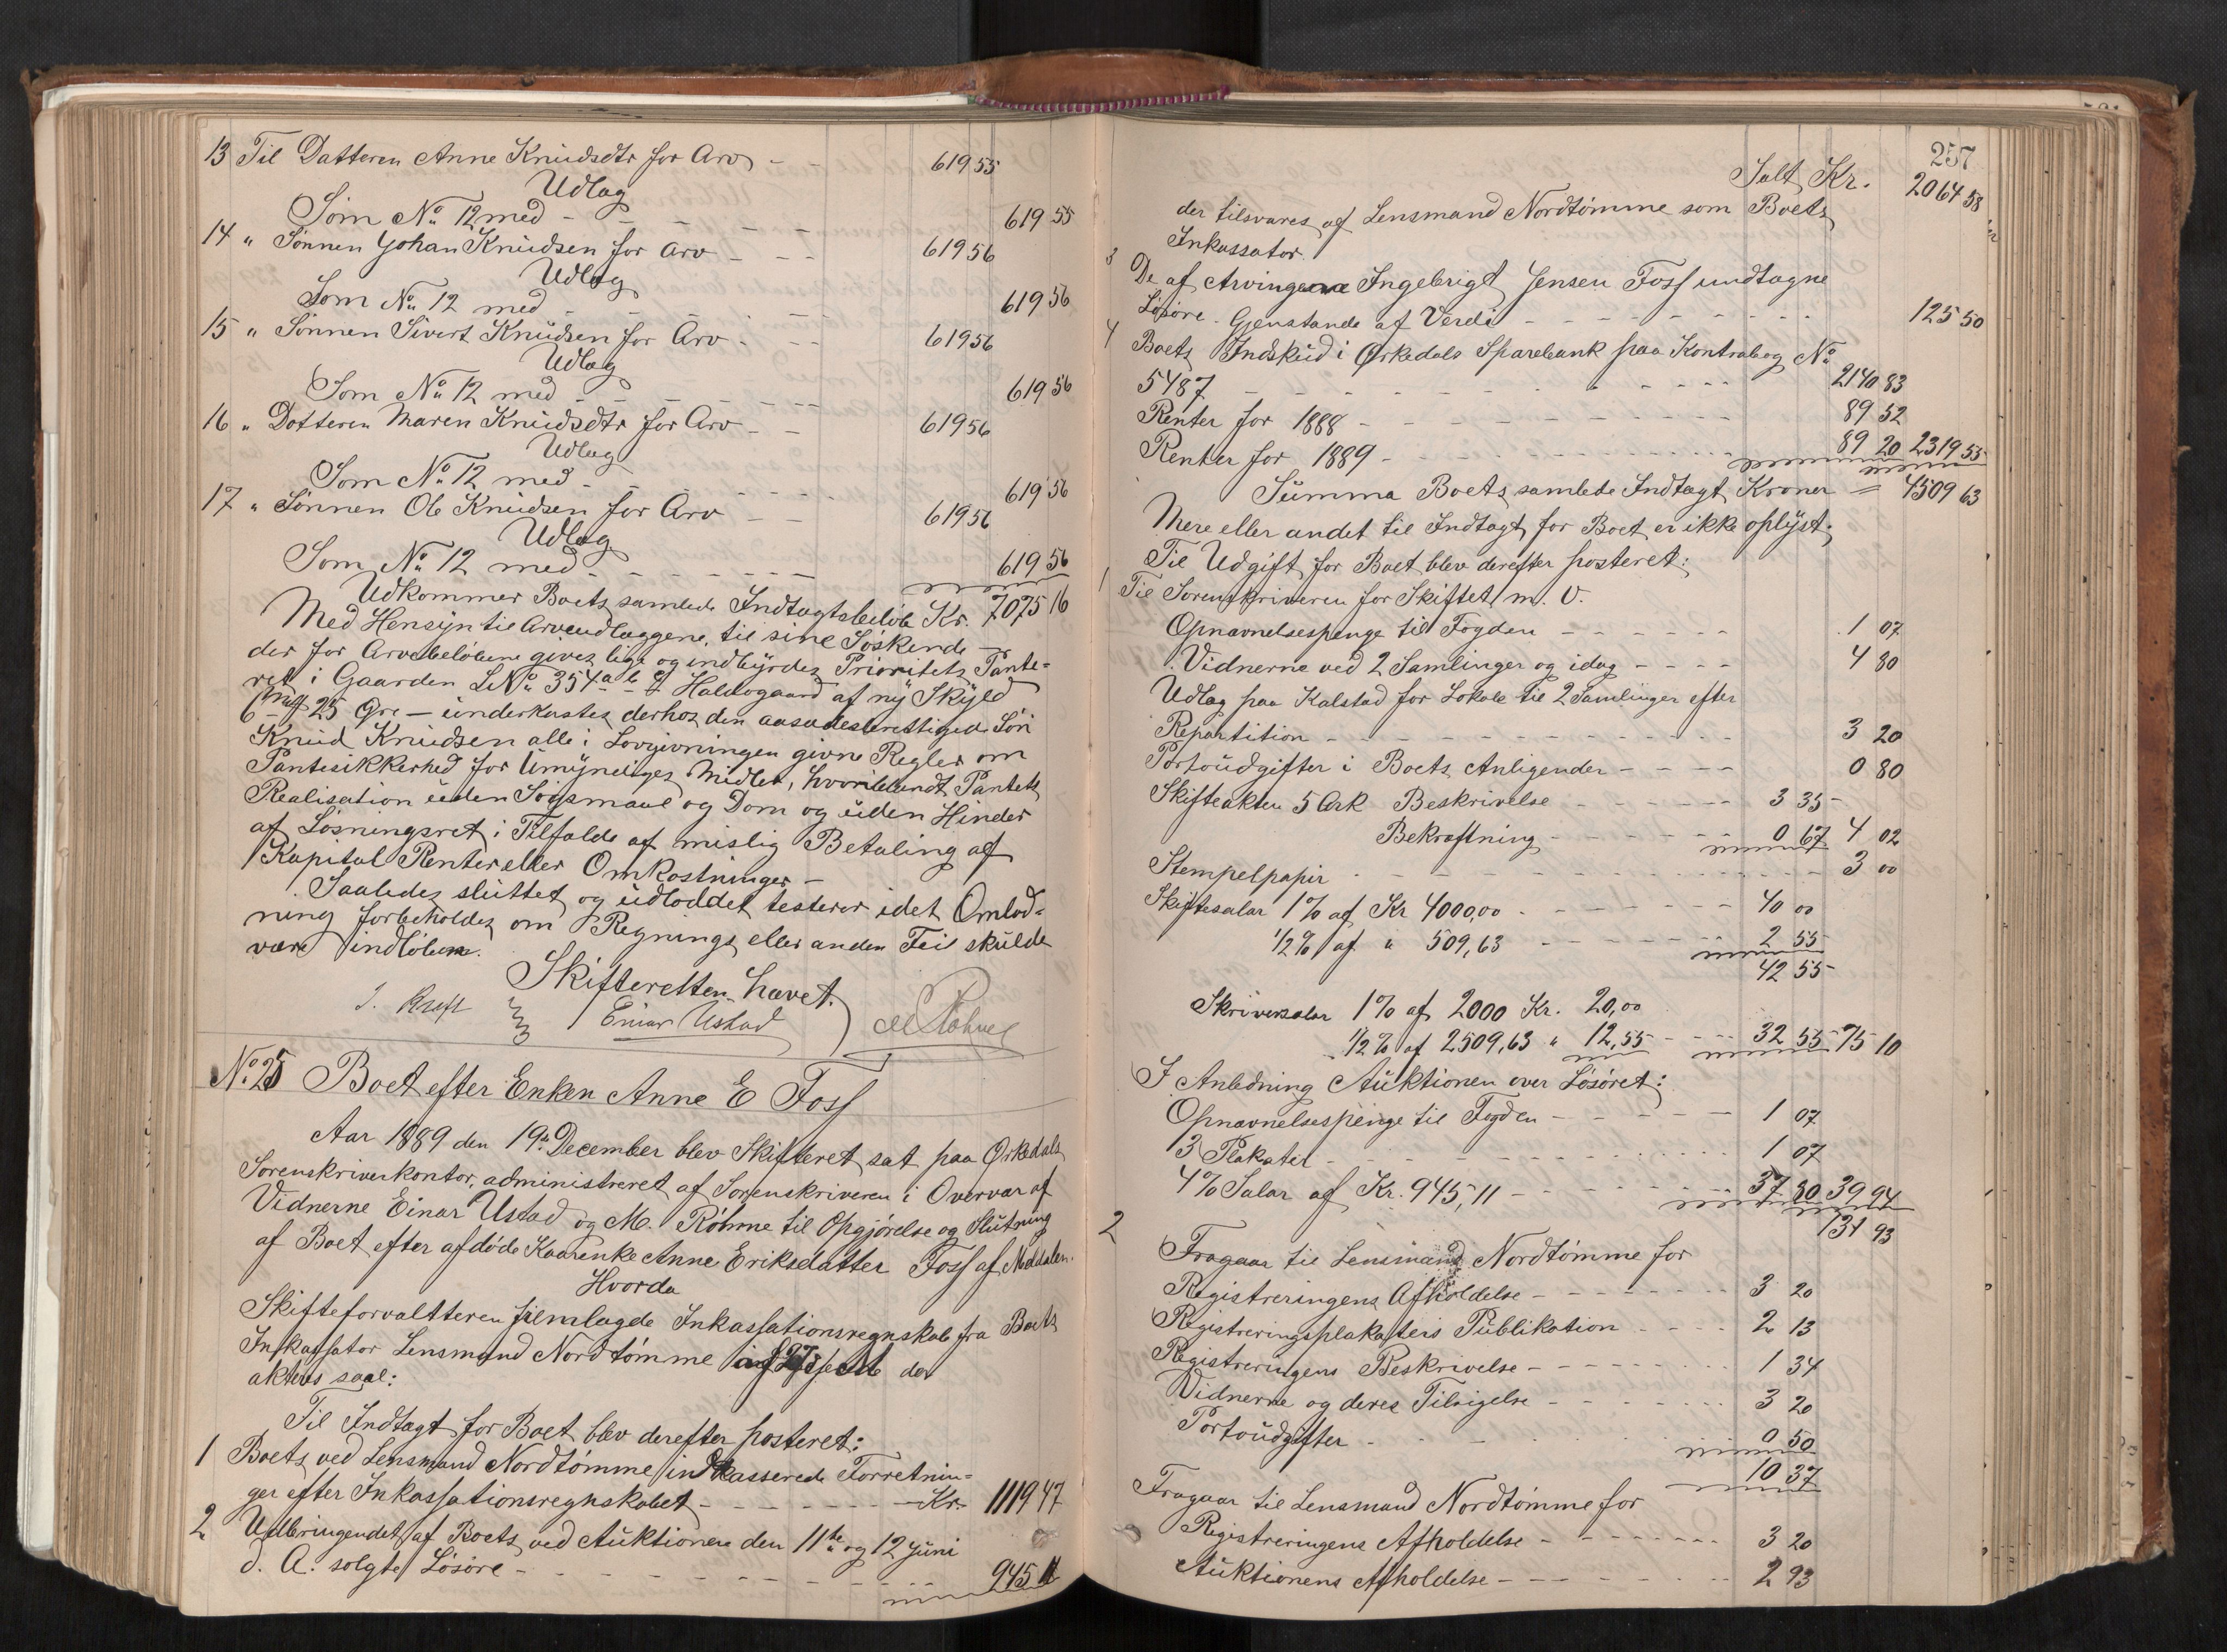 13 Til Datteren Anne Knudsdtr for Arv - - 619 55
Udlæg
Som No. 12 med - - - - - 619 55
14 " Sønnen Johan Knudsen for Arv - - - 619 56
Udlæg
Som No. 12 med - - - - - 619 56
15 " Sønnen Sivert Knudsen for Arv - - - 619 56
Udlæg
Som No. 12 med - - - - - 619 56
16 " Dotteren Maren Knudsdtr for Arv - - 619 56
Udlæg
Som No. 12 med - - - - - 619 56
17 " Sønnen Ole Knudsen for Arv - - 619 56
Udlæg
Som No. 12 med - - - - - 619 56
Udkommer Boets samlede Indtægtsbeløb Kr. 7075 16
Med Hensyn til Arveudlæggene til sine Søskende -
der for Arvebeløbene gives lige og indbyrdes Prioritets Pante-
ret i Gaarden LNo. 354 a b Haldogaard af ny Skyld
6 mrk 25 Øre - underkastes derhos den aasædesberettigede Søn
Knud Knudsen alle i Lovgivningen givne Regler om
Pantesikkerhed for Umyndiges Midler, hvoriblandt Pantets
Realisation uden Søgsmaal og Dom og uden Hinder
af Løsningsret i Tilfælde af mislig Betaling af
Kapital Renter eller Omkostninger -
Saaledes sluttet og udloddet testerer idet Omlod-
ning forbeholdes om Regnings eller anden Feil skulde
være indløben.
Skifteretten hævet.
J. Kraft Einar Ustad M Røhme
No. 25 Boet efter Enken Anne E Foss
Aar 1889 den 19de December blev Skifteret sat paa Ørkedals
Sorenskriverkontor, administreret af Sorenskriveren i Overvær af
Vidnerne Einar Ustad og M. Røhme til Opgjørelse og Slutning
af Boet efter afdøde Kaarenke Anne Eriksdatter Foss af Meldalen.
Hvorda
Skifteforvaltteren fremlagde Inkassationsregnskab fra Boets
Inkassator Lensmand Nordtømme der
akteres saal:
Til Indtægt for Boet blev derefter posteret:
1 Boets ved Lensmand Nordtømme indkasserede Forretnin-
ger efter Inkassationsregnskabet - - - - - Kr. 1119 47
2 Udbringendet af Boets ved Auktionen den 11te og 12 Juni
d. A. solgte Løsøre - - - - - 945 11
257
Salt Kr. 2064 58
der tilsvares af Lensmand Nordtømme som Boets
Inkassator.
3 De af Arvingerne Ingebrigt Jensen Foss undtagne
Løsøre-Gjenstande af Verdi - - - - - 125 50
4 Boets Indskud i Ørkedals Sparebank paa Kontrabog No.
5487 - - - - - 2140 83
Renter for 1888 - - - - - 89 52
Renter for 1889 - - - - - 89 20 2319 55
Summa Boets samlede Indtægt Kroner = 4509 63
Mere eller andet til Indtægt for Boet er ikke oplyst.
Til Udgift for Boet blev derefter posteret:
1 Til Sorenskriveren for Skiftet m. V.
Opnævnelsespenge til Fogden - - - - - 1 07
Vidnerne ved 2 Samlinger og idag - - - - 4 80
Udlæg paa Kalstad for Lokale til 2 Samlinger efter
Repartition - - - - - 3 20
Portoudgifter i Boets Anligender - - - - 0 80
Skifteakten 5 Ark Beskrivelse - - - - 3 35
Bekræftning - - - - 0 67 4 02
Stempelpapir - - - - - 3 00
Skiftesalær 1% af Kr 4000,00 - - - - 40 00
1/2% af " 509,63 - - - - 2 55
42 55
Skriversalær 1% af 2000 Kr. 20,00
1/2% af 2509,63 " 12,55 - - 32 55 75 10
I Anledning Auktionen over Løsøret:
Opnævnelsespenge til Fogden - - - - - 1 07
3 Plakater - - - - - 1 07
4% Salær af Kr. 945,11 - - - - - 37 80 39 94
131 93
2 Fragaar til Lensmand Nordtømme for
Registreringens Afholdelse - - - - - 3 20
Registreringsplakaters Publikation - - - - 2 13
Registreringens Beskrivelse - - - - - 1 34
Vidnerne og deres Tilsigelse - - - - - 3 20
Portoudgifter - - - - - 0 50
10 37
Fragaar til Lensmand Nordtømme for
Registreringens Afholdelse - - - - - 3 20
Auktionens Afholdelse - - - - - 2 93